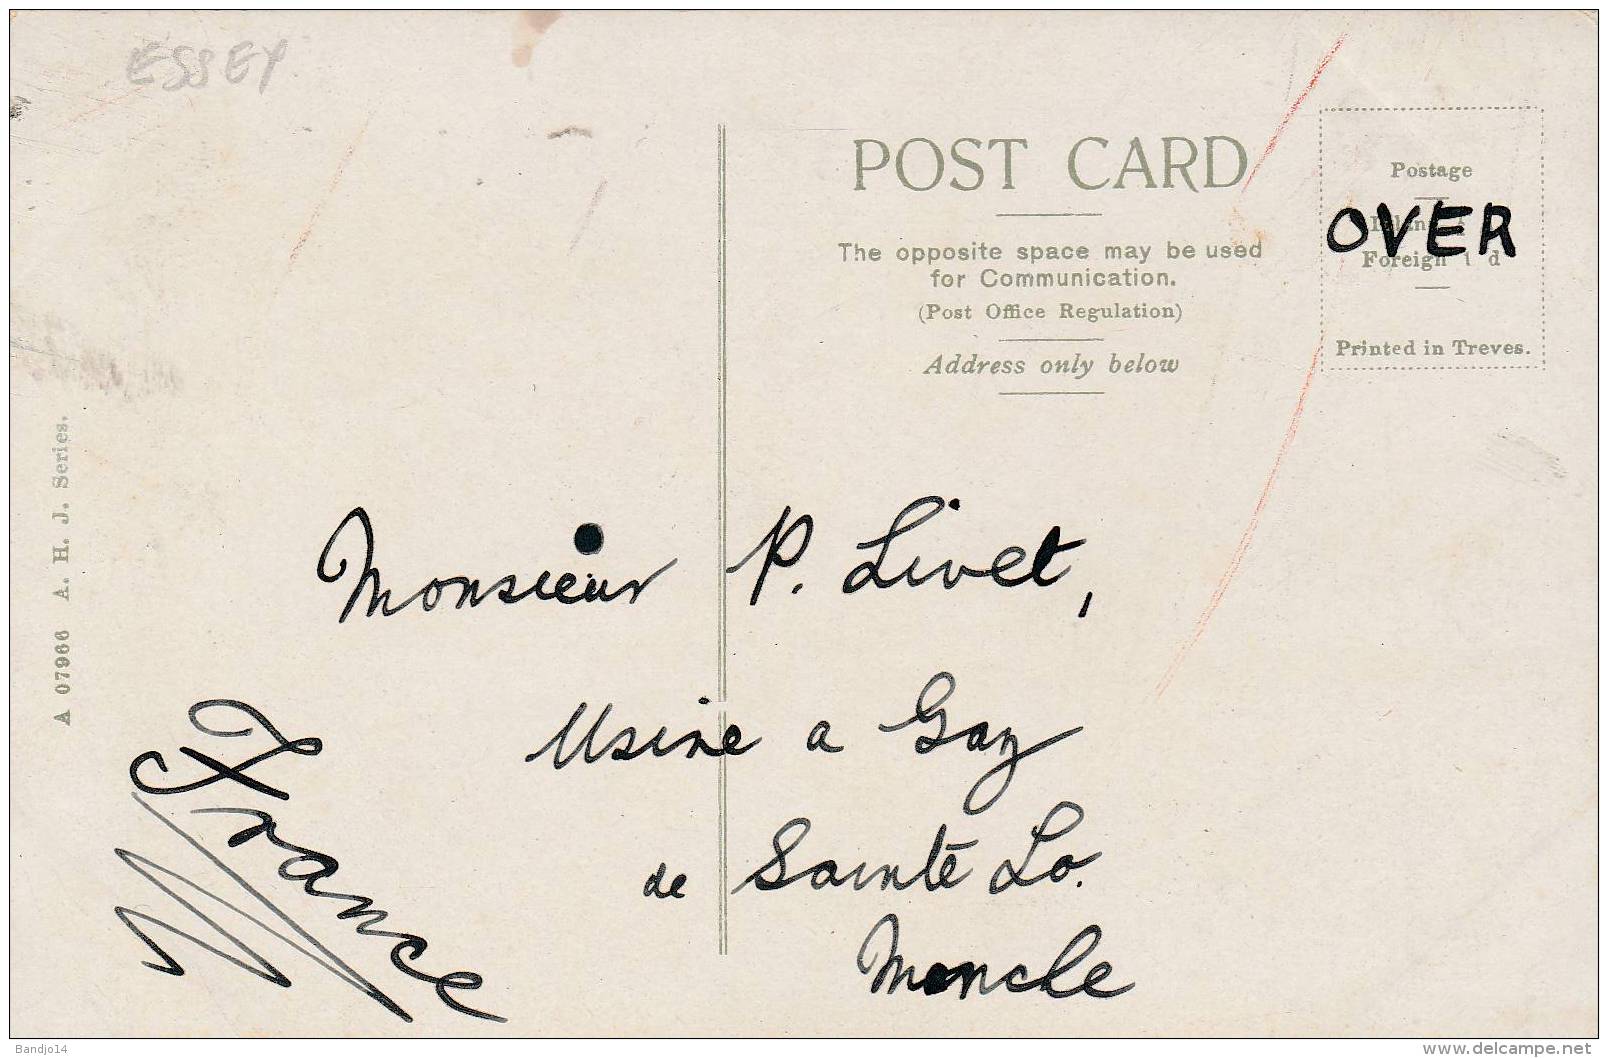 ESSEY
POST CARD
The opposite space may be used
for Communication.
(Post Office Regulation)
Address only below
Postage
OVER
Foreign 1 d
Printed in Treves.
A 07966 A. H. J. Series.
Monsieur P. Livet,
Usine a Gaz
de Sainte Lo.
Manche
France
Bandjo14
www.delcampe.net